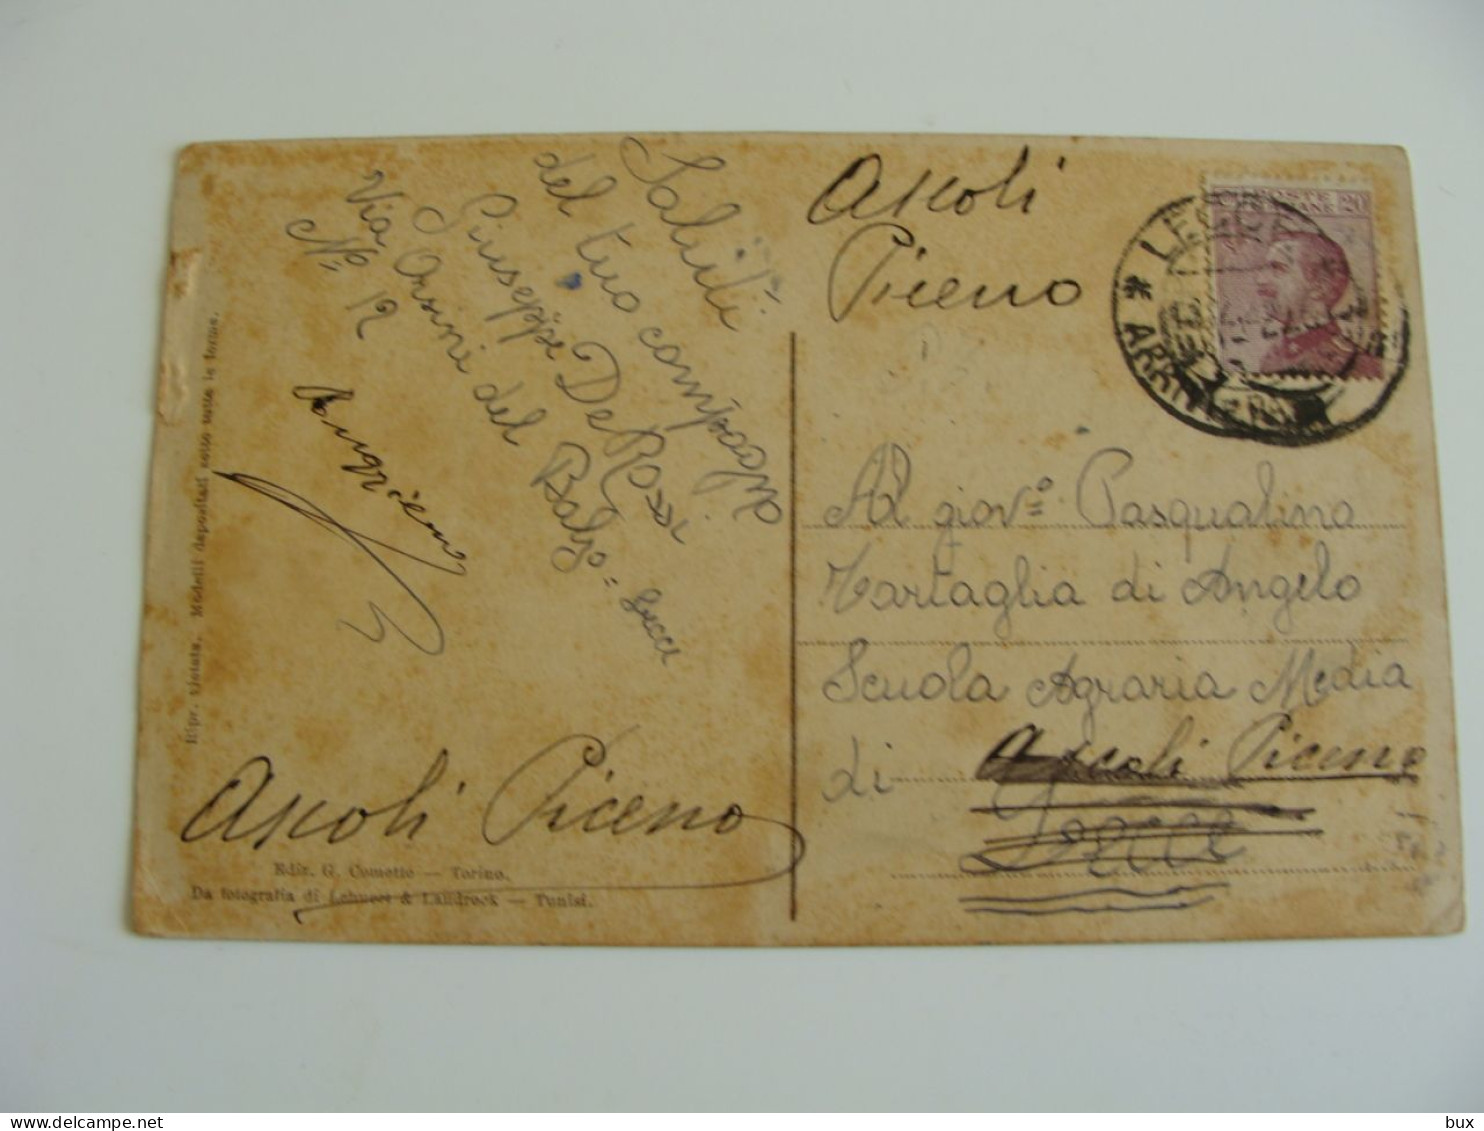 Saluti
del tuo compagno
Giuseppe De Rossi
Via Orsini del Balzo = Lecce
No 12
Ascoli
Piceno
20
* LECCE
ARRIVI
Al giovº Pasqualino
Tartaglia di Angelo
Scuola Agraria Media
di Ascoli Piceno
Lecce
Ascoli Piceno
Ediz. G. Cometto — Torino.
Da fotografia di Lehnert & Landrock — Tunisi.
Ripr. vietata. Modelli depositati sotto tutte le forme.
bux